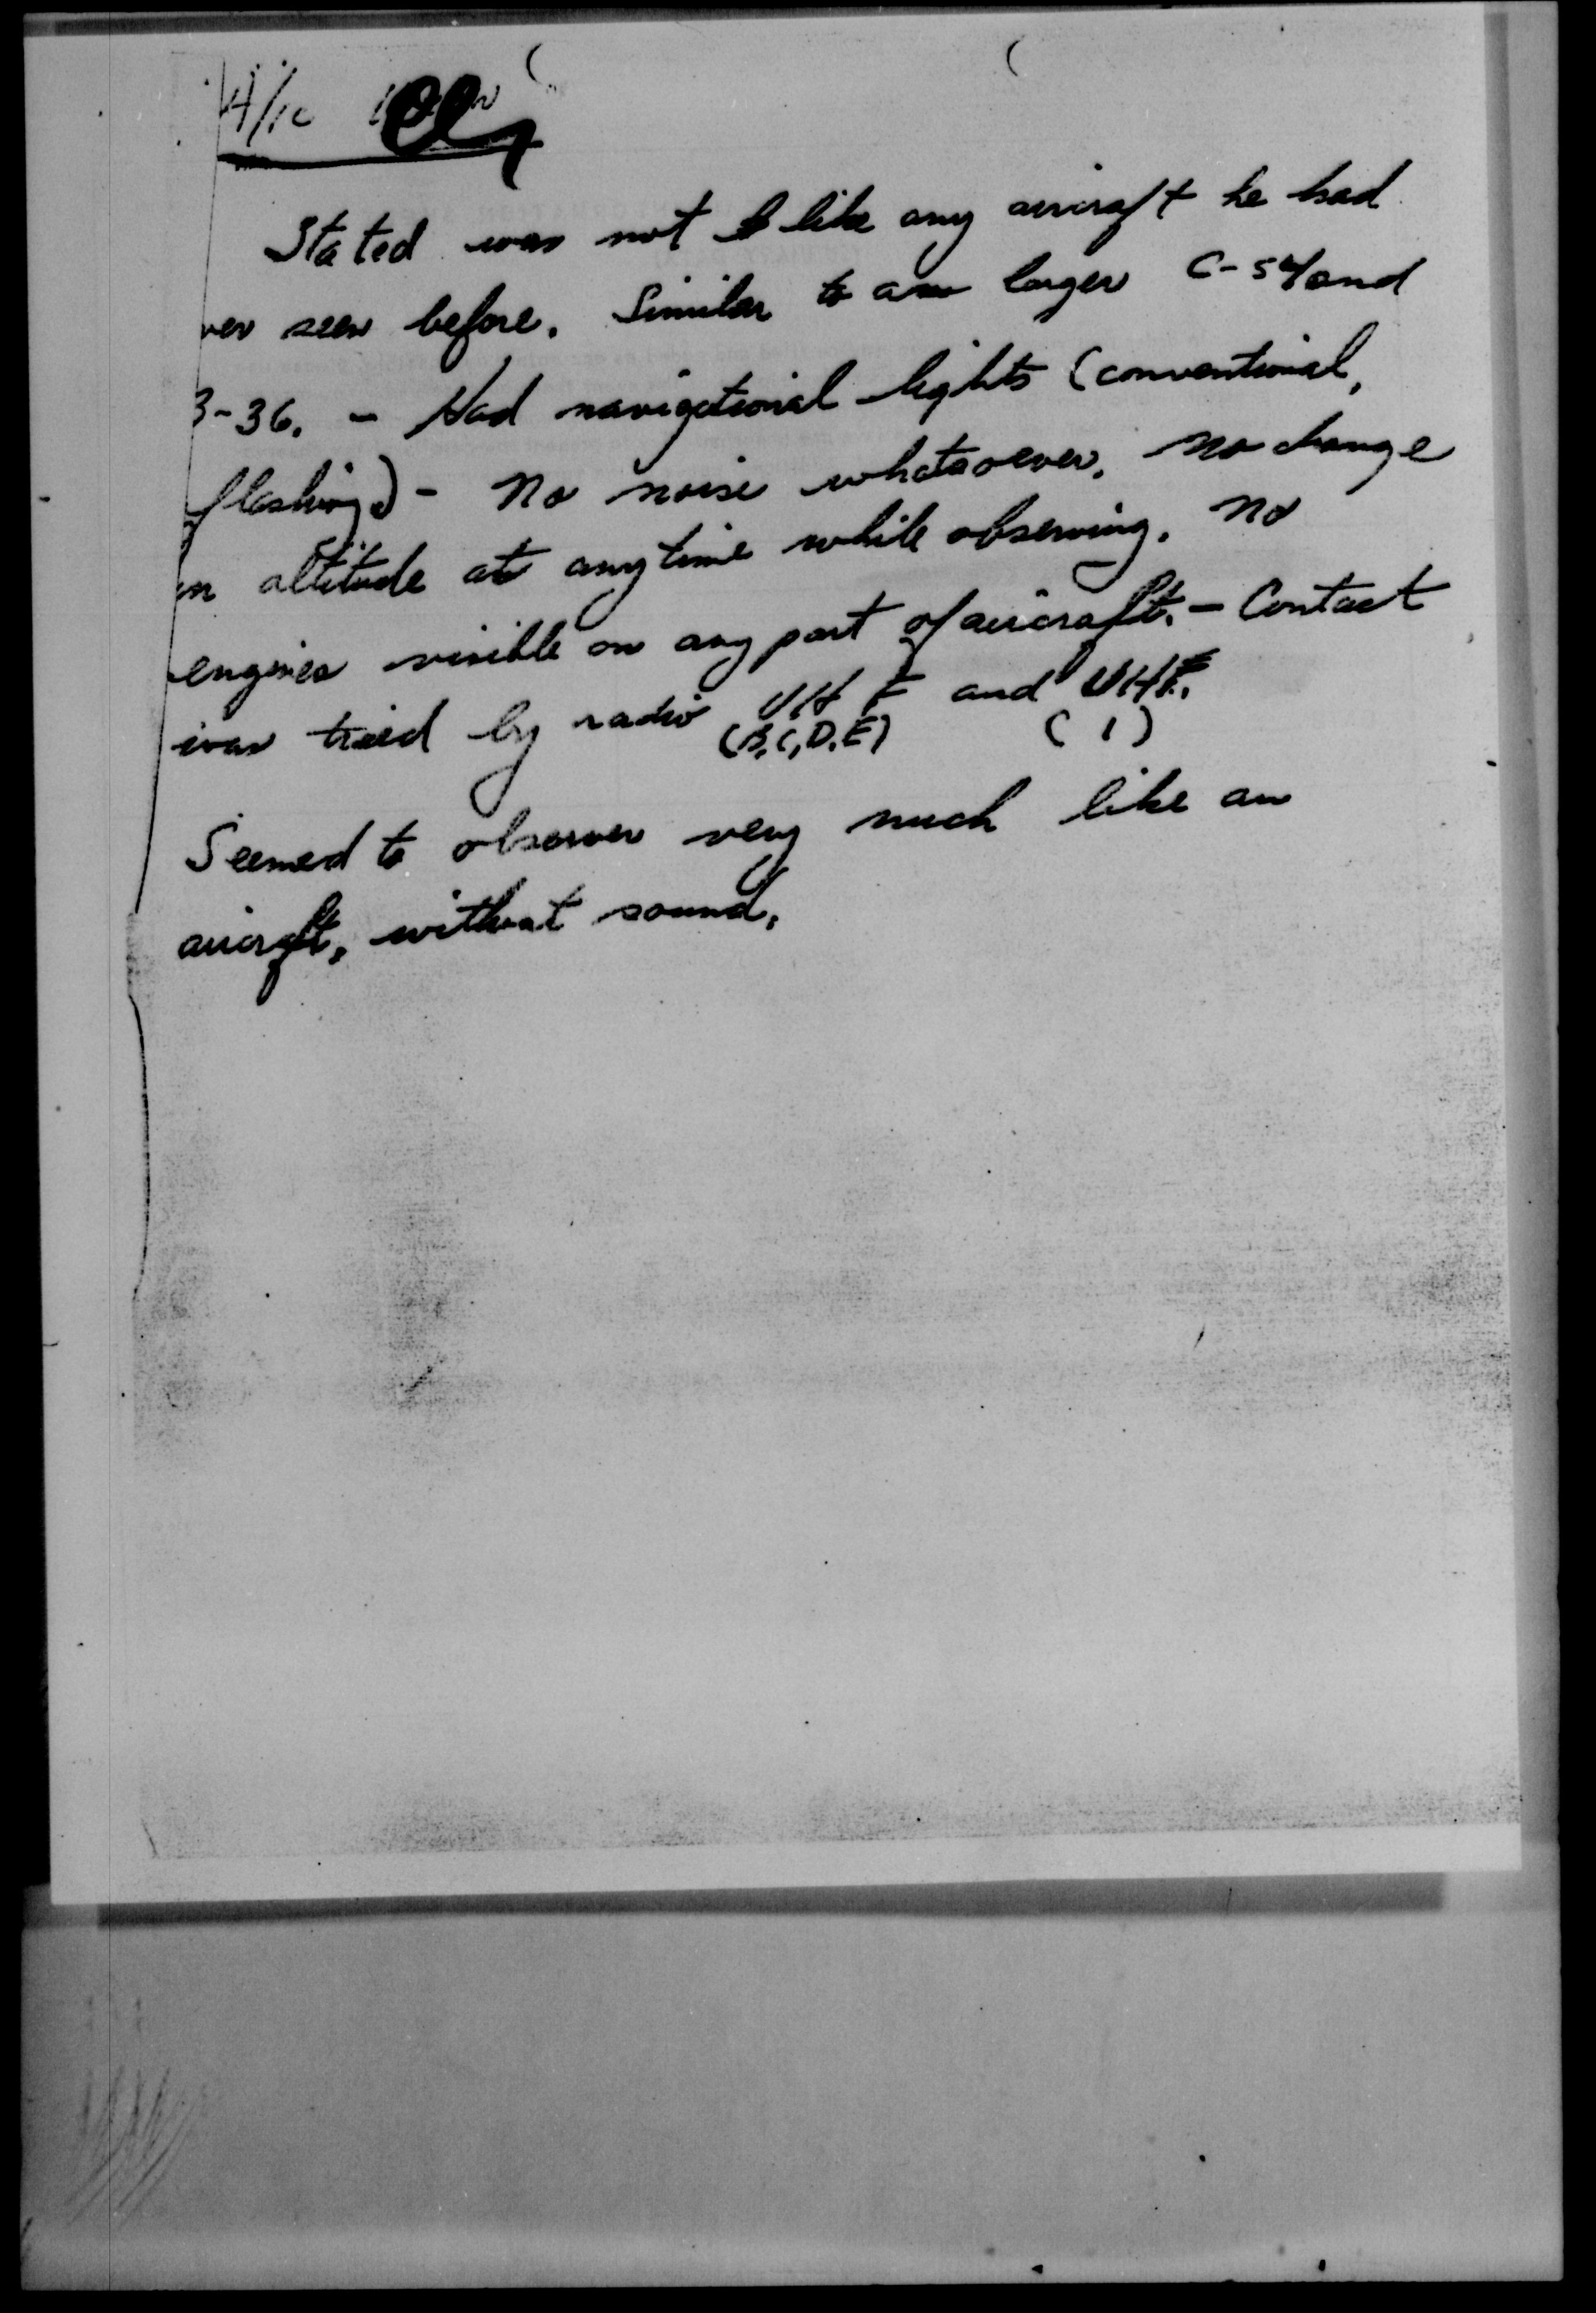 Stated was not like any aircraft he had
ver seen before. Similar to a larger C-54 and
3-36. - Had navigational lights (conventional,
flashing) - No noise whatsoever. No change
in altitude at anytime while observing. No
engines visible on any part of aircraft. - Contact
was tried by radio VHF and UHF.
(B,C,D,E) (1)
Seemed to observer very much like an
aircraft, without sound.